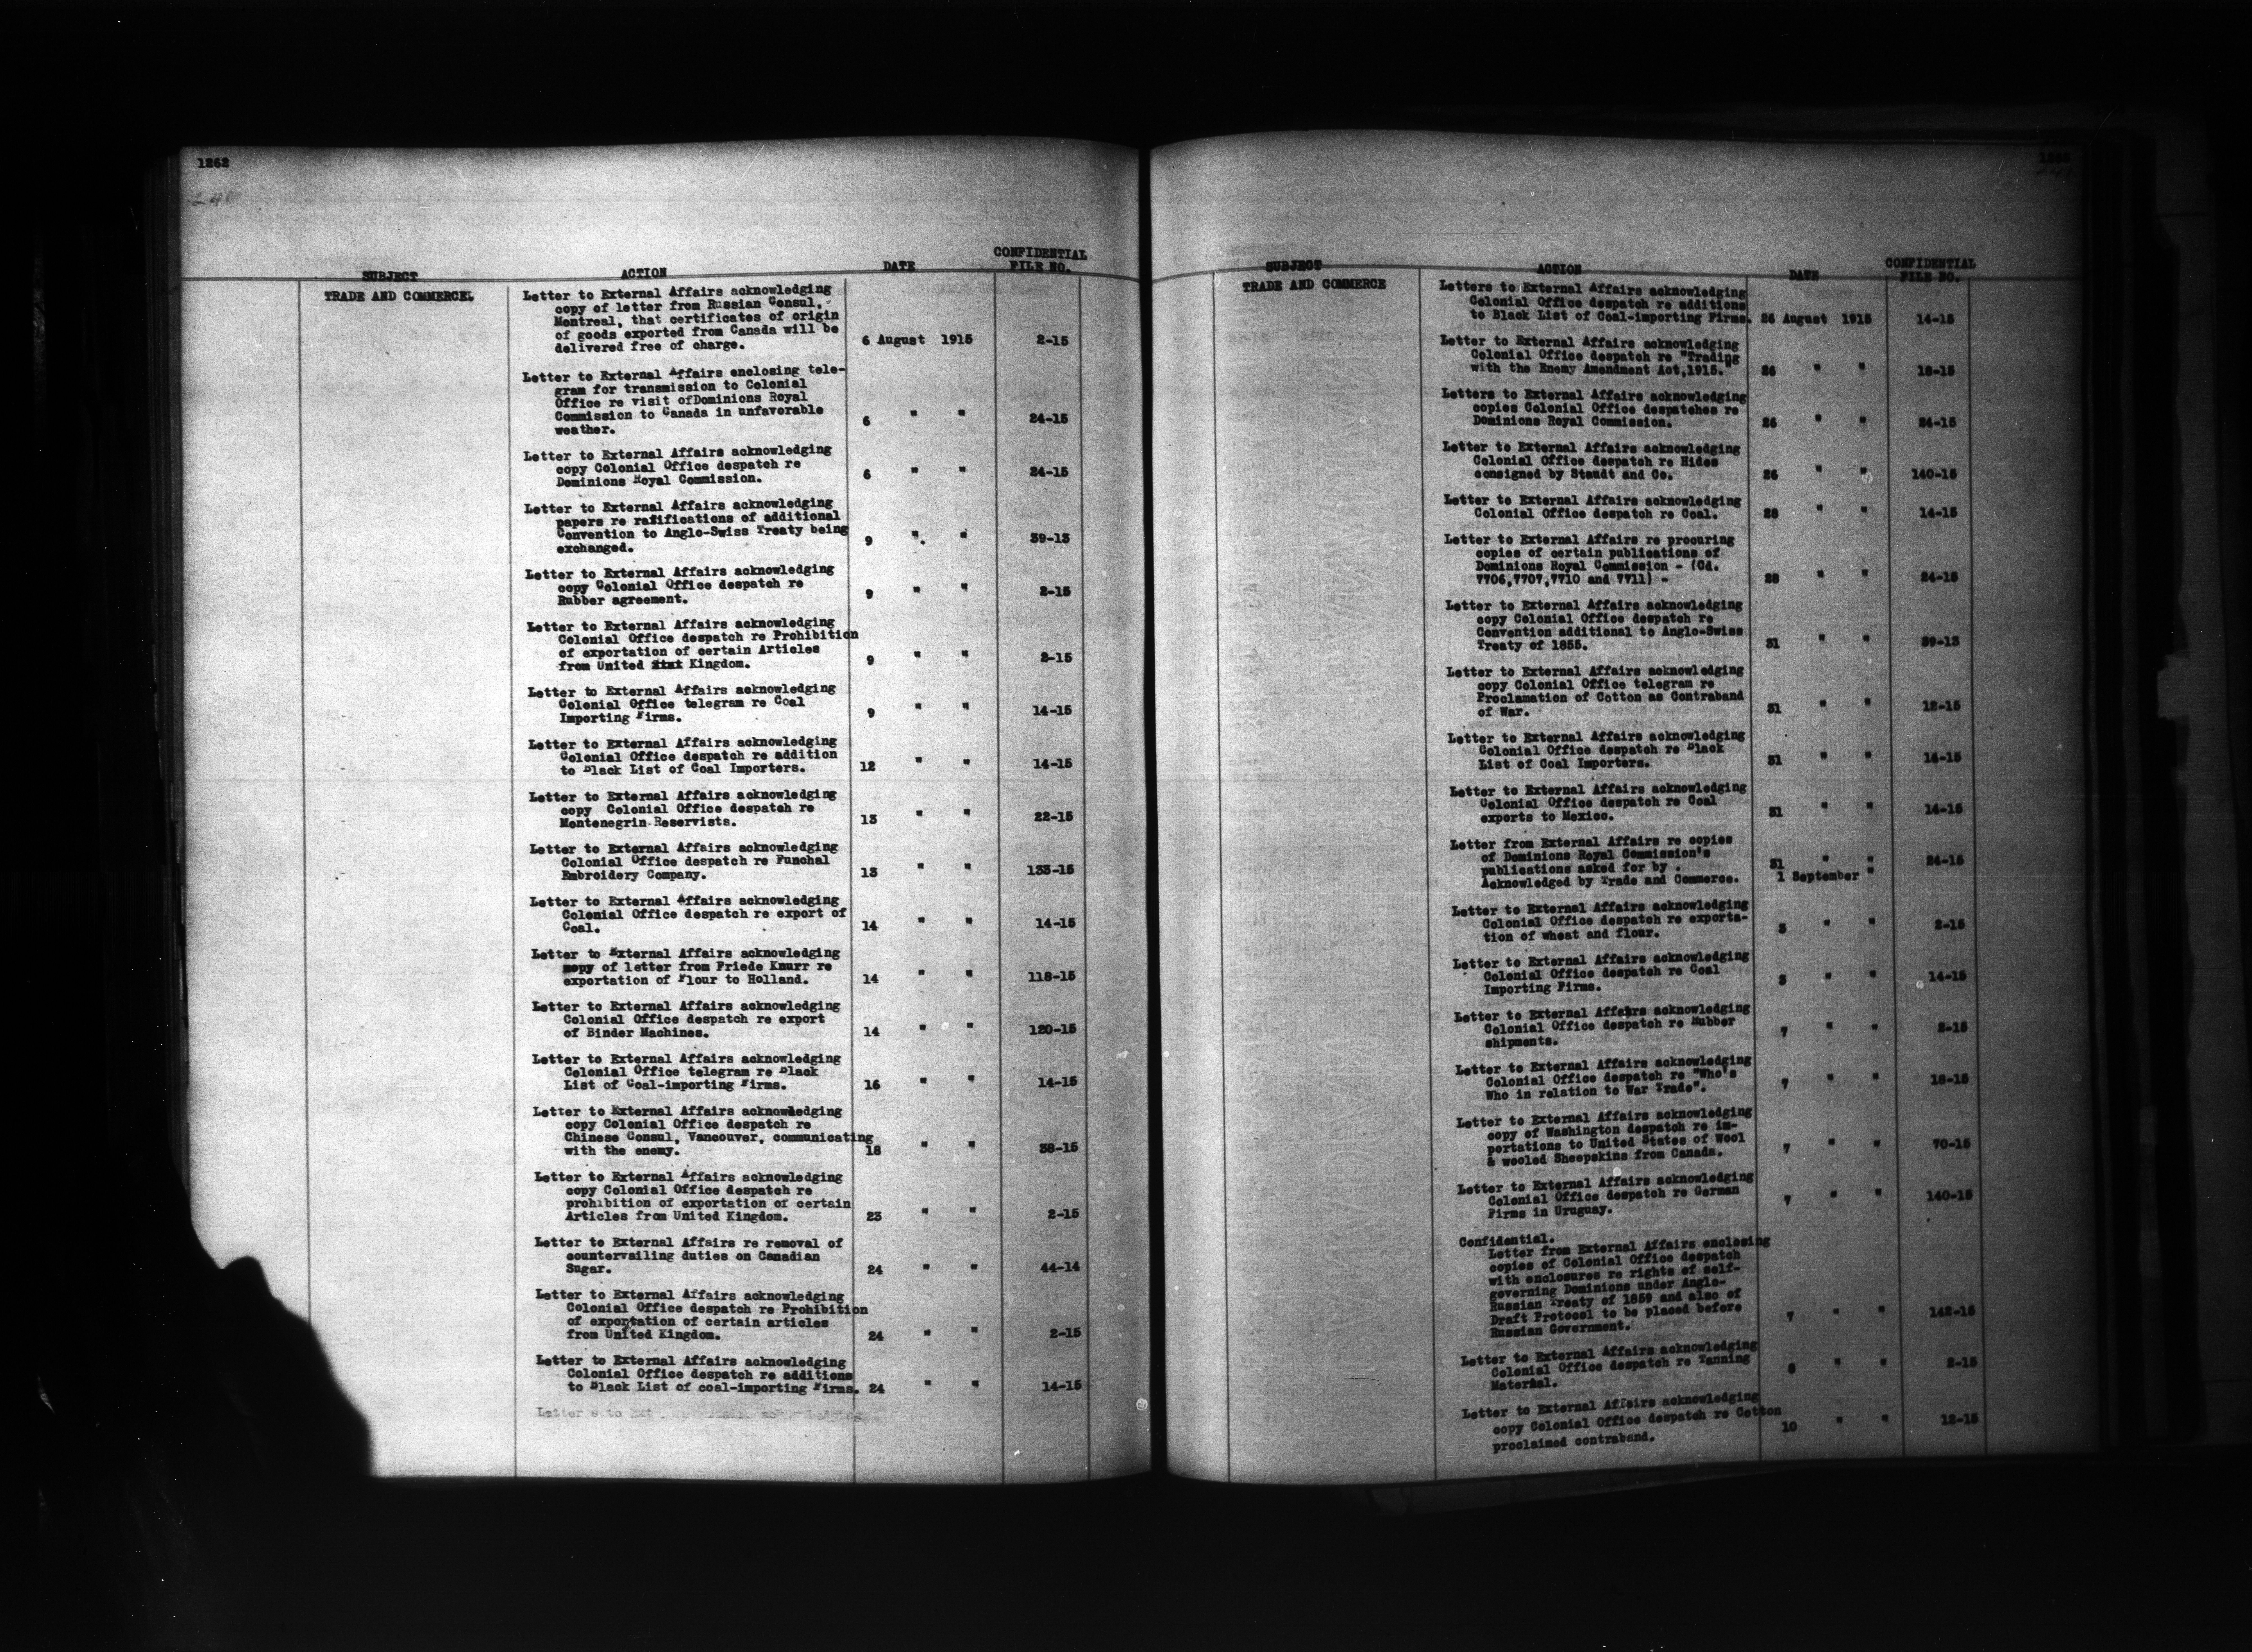 1262
240
SUBJECT ACTION DATE CONFIDENTIAL FILE NO.
TRADE AND COMMERCE.
Letter to External Affairs acknowledging
copy of letter from Russian Consul,
Montreal, that certificates of origin
of goods exported from Canada will be
delivered free of charge. 6 August 1915 2-15
Letter to External Affairs enclosing tele-
gram for transmission to Colonial
Office re visit ofDominions Royal
Commission to Canada in unfavorable
weather. 6 " " 24-15
Letter to External Affairs acknowledging
copy Colonial Office despatch re
Dominions Royal Commission. 6 " " 24-15
Letter to External Affairs acknowledging
papers re ratifications of additional
Convention to Anglo-Swiss Treaty being
exchanged. 9 " " 39-13
Letter to External Affairs acknowledging
copy Colonial Office despatch re
Rubber agreement. 9 " " 2-15
Letter to External Affairs acknowledging
Colonial Office despatch re Prohibition
of exportation of certain Articles
from United Kingdom. 9 " " 2-15
Letter to External Affairs acknowledging
Colonial Office telegram re Coal
Importing Firms. 9 " " 14-15
Letter to External Affairs acknowledging
Colonial Office despatch re addition
to Black List of Coal Importers. 12 " " 14-15
Letter to External Affairs acknowledging
copy Colonial Office despatch re
Montenegrin Reservists. 13 " " 22-15
Letter to External Affairs acknowledging
Colonial Office despatch re Funchal
Embroidery Company. 13 " " 133-15
Letter to External Affairs acknowledging
Colonial Office despatch re export of
Coal. 14 " " 14-15
Letter to External Affairs acknowledging
copy of letter from Friede Knurr re
exportation of Flour to Holland. 14 " " 118-15
Letter to External Affairs acknowledging
Colonial Office despatch re export
of Binder Machines. 14 " " 120-15
Letter to External Affairs acknowledging
Colonial Office telegram re Black
List of Coal-importing Firms. 16 " " 14-15
Letter to External Affairs acknowledging
copy Colonial Office despatch re
Chinese Consul, Vancouver, communicating
with the enemy. 18 " " 38-15
Letter to External Affairs acknowledging
copy Colonial Office despatch re
prohibition of exportation of certain
Articles from United Kingdom. 23 " " 2-15
Letter to External Affairs re removal of
countervailing duties on Canadian
Sugar. 24 " " 44-14
Letter to External Affairs acknowledging
Colonial Office despatch re Prohibition
of exportation of certain articles
from United Kingdom. 24 " " 2-15
Letter to External Affairs acknowledging
Colonial Office despatch re additions
to Black List of coal-importing Firms. 24 " " 14-15
SUBJECT ACTION DATE CONFIDENTIAL FILE NO.
TRADE AND COMMERCE
Letters to External Affairs acknowledging
Colonial Office despatch re additions
to Black List of Coal-importing Firms. 26 August 1915 14-15
Letter to External Affairs acknowledging
Colonial Office despatch re "Trading
with the Enemy Amendment Act,1915." 26 " " 18-15
Letters to External Affairs acknowledging
copies Colonial Office despatches re
Dominions Royal Commission. 26 " " 24-15
Letter to External Affairs acknowledging
Colonial Office despatch re Hides
consigned by Staudt and Co. 26 " " 140-15
Letter to External Affairs acknowledging
Colonial Office despatch re Coal. 28 " " 14-15
Letter to External Affairs re procuring
copies of certain publications of
Dominions Royal Commission - (Cd.
7706,7707,7710 and 7711) - 28 " " 24-15
Letter to External Affairs acknowledging
copy Colonial Office despatch re
Convention additional to Anglo-Swiss
Treaty of 1855. 31 " " 39-13
Letter to External Affairs acknowledging
copy Colonial Office telegram re
Proclamation of Cotton as Contraband
of War. 31 " " 12-15
Letter to External Affairs acknowledging
Colonial Office despatch re Black
List of Coal Importers. 31 " " 14-15
Letter to External Affairs acknowledging
Colonial Office despatch re Coal
exports to Mexico. 31 " " 14-15
Letter from External Affairs re copies
of Dominions Royal Commission's
publications asked for by . 31 " " 24-15
Acknowledged by Trade and Commerce. 1 September "
Letter to External Affairs acknowledging
Colonial Office despatch re exporta-
tion of wheat and flour. 3 " " 2-15
Letter to External Affairs acknowledging
Colonial Office despatch re Coal
Importing Firms. 3 " " 14-15
Letter to External Affairs acknowledging
Colonial Office despatch re Rubber
shipments. 7 " " 2-15
Letter to External Affairs acknowledging
Colonial Office despatch re "Who's
Who in relation to War Trade". 7 " " 18-15
Letter to External Affairs acknowledging
copy of Washington despatch re im-
portations to United States of Wool
& wooled Sheepskins from Canada. 7 " " 70-15
Letter to External Affairs acknowledging
Colonial Office despatch re German
Firms in Uruguay. 7 " " 140-15
Confidential.
Letter from External Affairs enclosing
copies of Colonial Office despatch
with enclosures re rights of self-
governing Dominions under Anglo-
Russian Treaty of 1859 and also of
Draft Protocol to be placed before
Russian Government. 7 " " 142-15
Letter to External Affairs acknowledging
Colonial Office despatch re Tanning
Material. 8 " " 2-15
Letter to External Affairs acknowledging
copy Colonial Office despatch re Cotton
proclaimed contraband. 10 " " 12-15